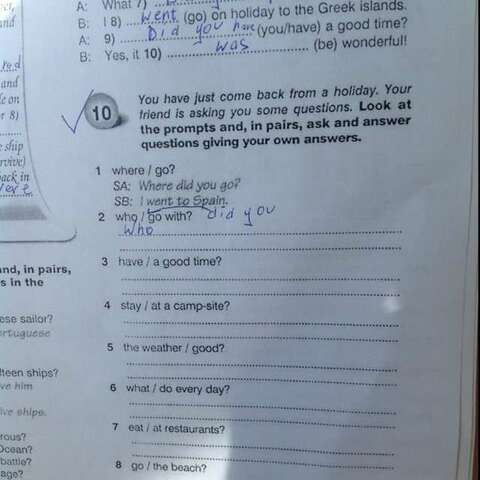 A: What 7)
B: I 8) went (go) on holiday to the Greek islands.
A: 9) Did you have (you/have) a good time?
B: Yes, it 10) was (be) wonderful!
and
red
and
e on
r 8)
ship
rvive)
ack in
were
10
You have just come back from a holiday. Your
friend is asking you some questions. Look at
the prompts and, in pairs, ask and answer
questions giving your own answers.
1 where / go?
SA: Where did you go?
SB: I went to Spain.
2 who / go with? did you
who
3 have / a good time?
4 stay / at a camp-site?
5 the weather / good?
6 what / do every day?
7 eat / at restaurants?
8 go / the beach?
and, in pairs,
s in the
ese sailor?
ortuguese
fteen ships?
ve him
ive ships.
rous?
Ocean?
battle?
age?